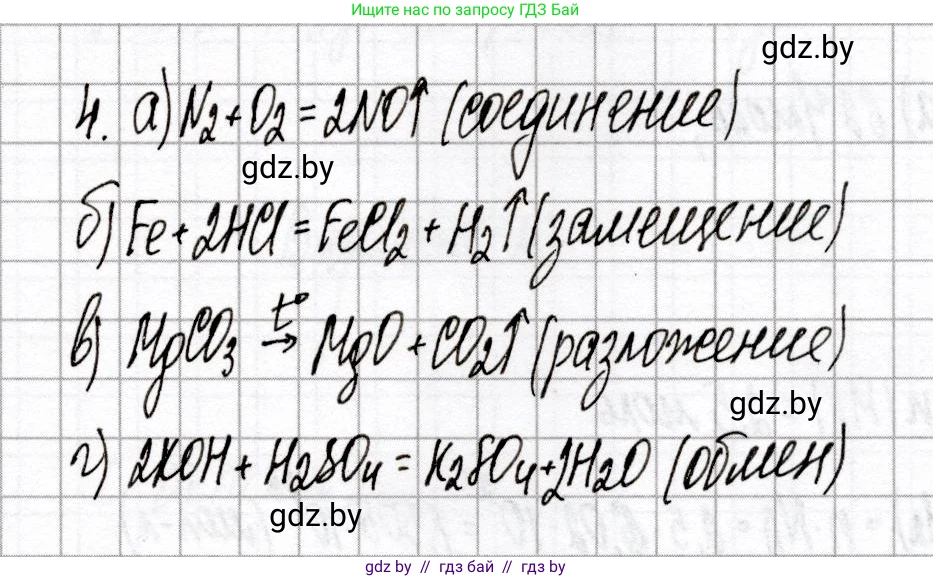 Ищите нас по запросу ГДЗ Бай
gdz.by
4. а) N₂ + O₂ = 2NO↑ (соединение)
gdz.by
б) Fe + 2HCl = FeCl₂ + H₂↑ (замещение)
в) MgCO₃ t°→ MgO + CO₂↑ (разложение)
gdz.by
г) 2KOH + H₂SO₄ = K₂SO₄ + 2H₂O (обмен)
gdz.by
gdz.by // гдз бай // gdz by